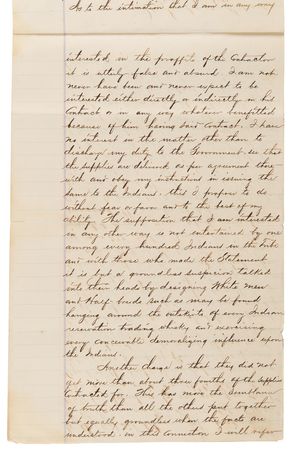 As to the intimation that I am in any way
interested in the proffits of the Contractor
it is utterly false and absurd. I am not
never have been and never expect to be
interested either directly or indirectly in his
Contract or in any way whatever benefitted
because of him having said contract. I have
no interest in the matter other than to
discharge my duty to the Government, see that
the supplies are delivered as per agreement there
with and obey my instructions in issuing the
same to the Indians. this I propose to do
without fear or favor and to the best of my
ability. The supposition that I am interested
in any other way is not entertained by one
among every hundred Indians in the tribe
and with those who made the Statement
it is but a groundless suspicion talked
into their heads by designing White Men
and Half breeds such as may be found
hanging around the outskirts of every Indian
reservation trading whisky and exercising
every conceivable demoralizing influence upon
the Indians.
Another charge is that they did not
get more than about three fourths of the supplies
contracted for. This has more the semblance
of truth than all the others put together
but equally groundless when the facts are
understood. in this connection I will refer